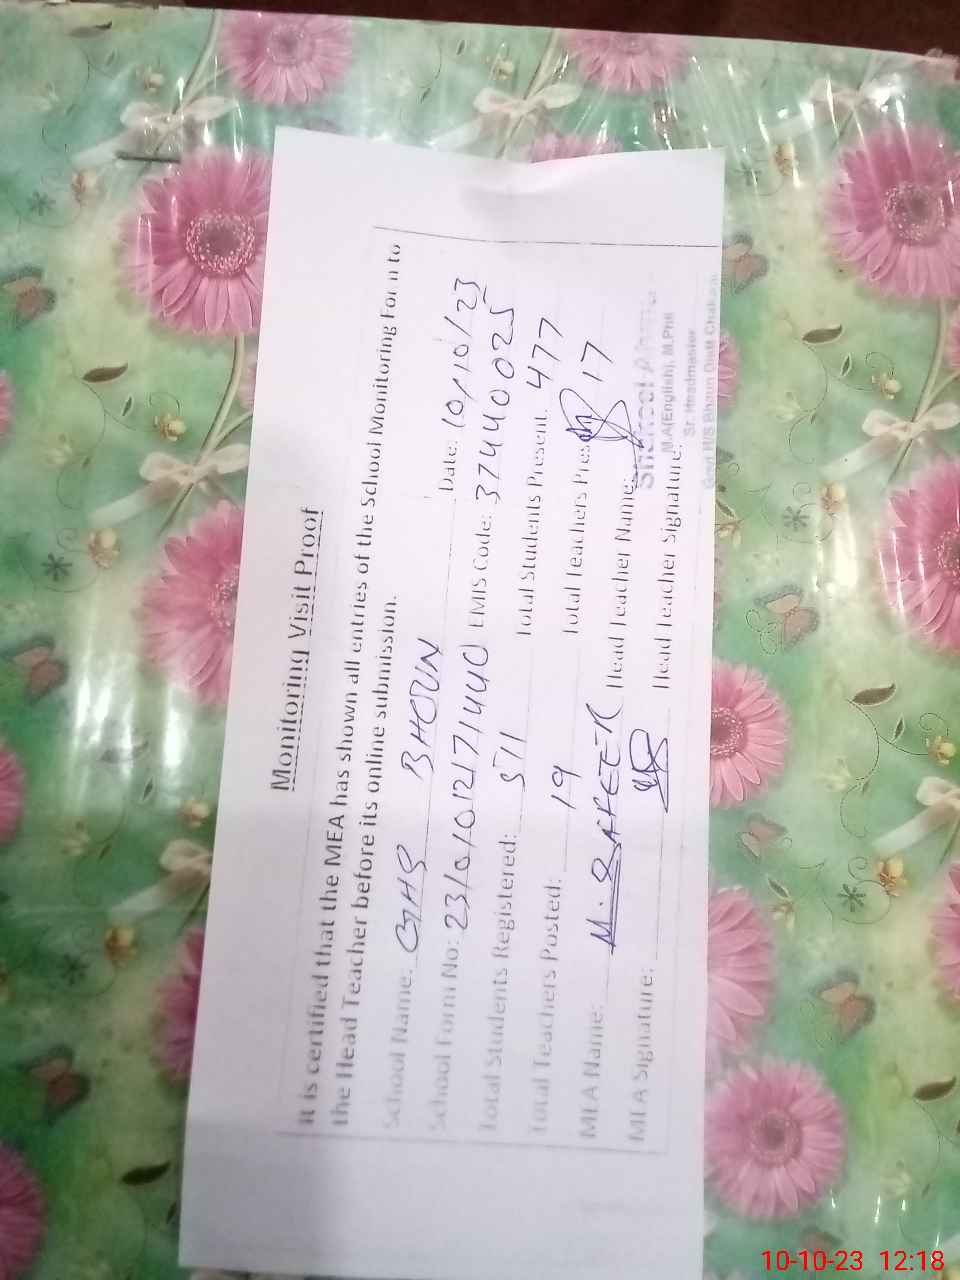 Monitoring Visit Proof
It is certified that the MEA has shown all entries of the School Monitoring Form to
the Head Teacher before its online submission.
School Name: GHS BHOUN Date: 10/10/23
School Form No: EMIS Code: 37440025
Total Students Registered: 511 Total Students Present: 477
Total Teachers Posted: 19 Total Teachers Present 17
MEA Name: M. Head Teacher Name:
MEA Signature: Head Teacher Signature:
Shakeel
M.A(English), M.Phil
Sr. Headmaster
Govt H/S Bhoun Distt Chakwal
10-10-23 12:18